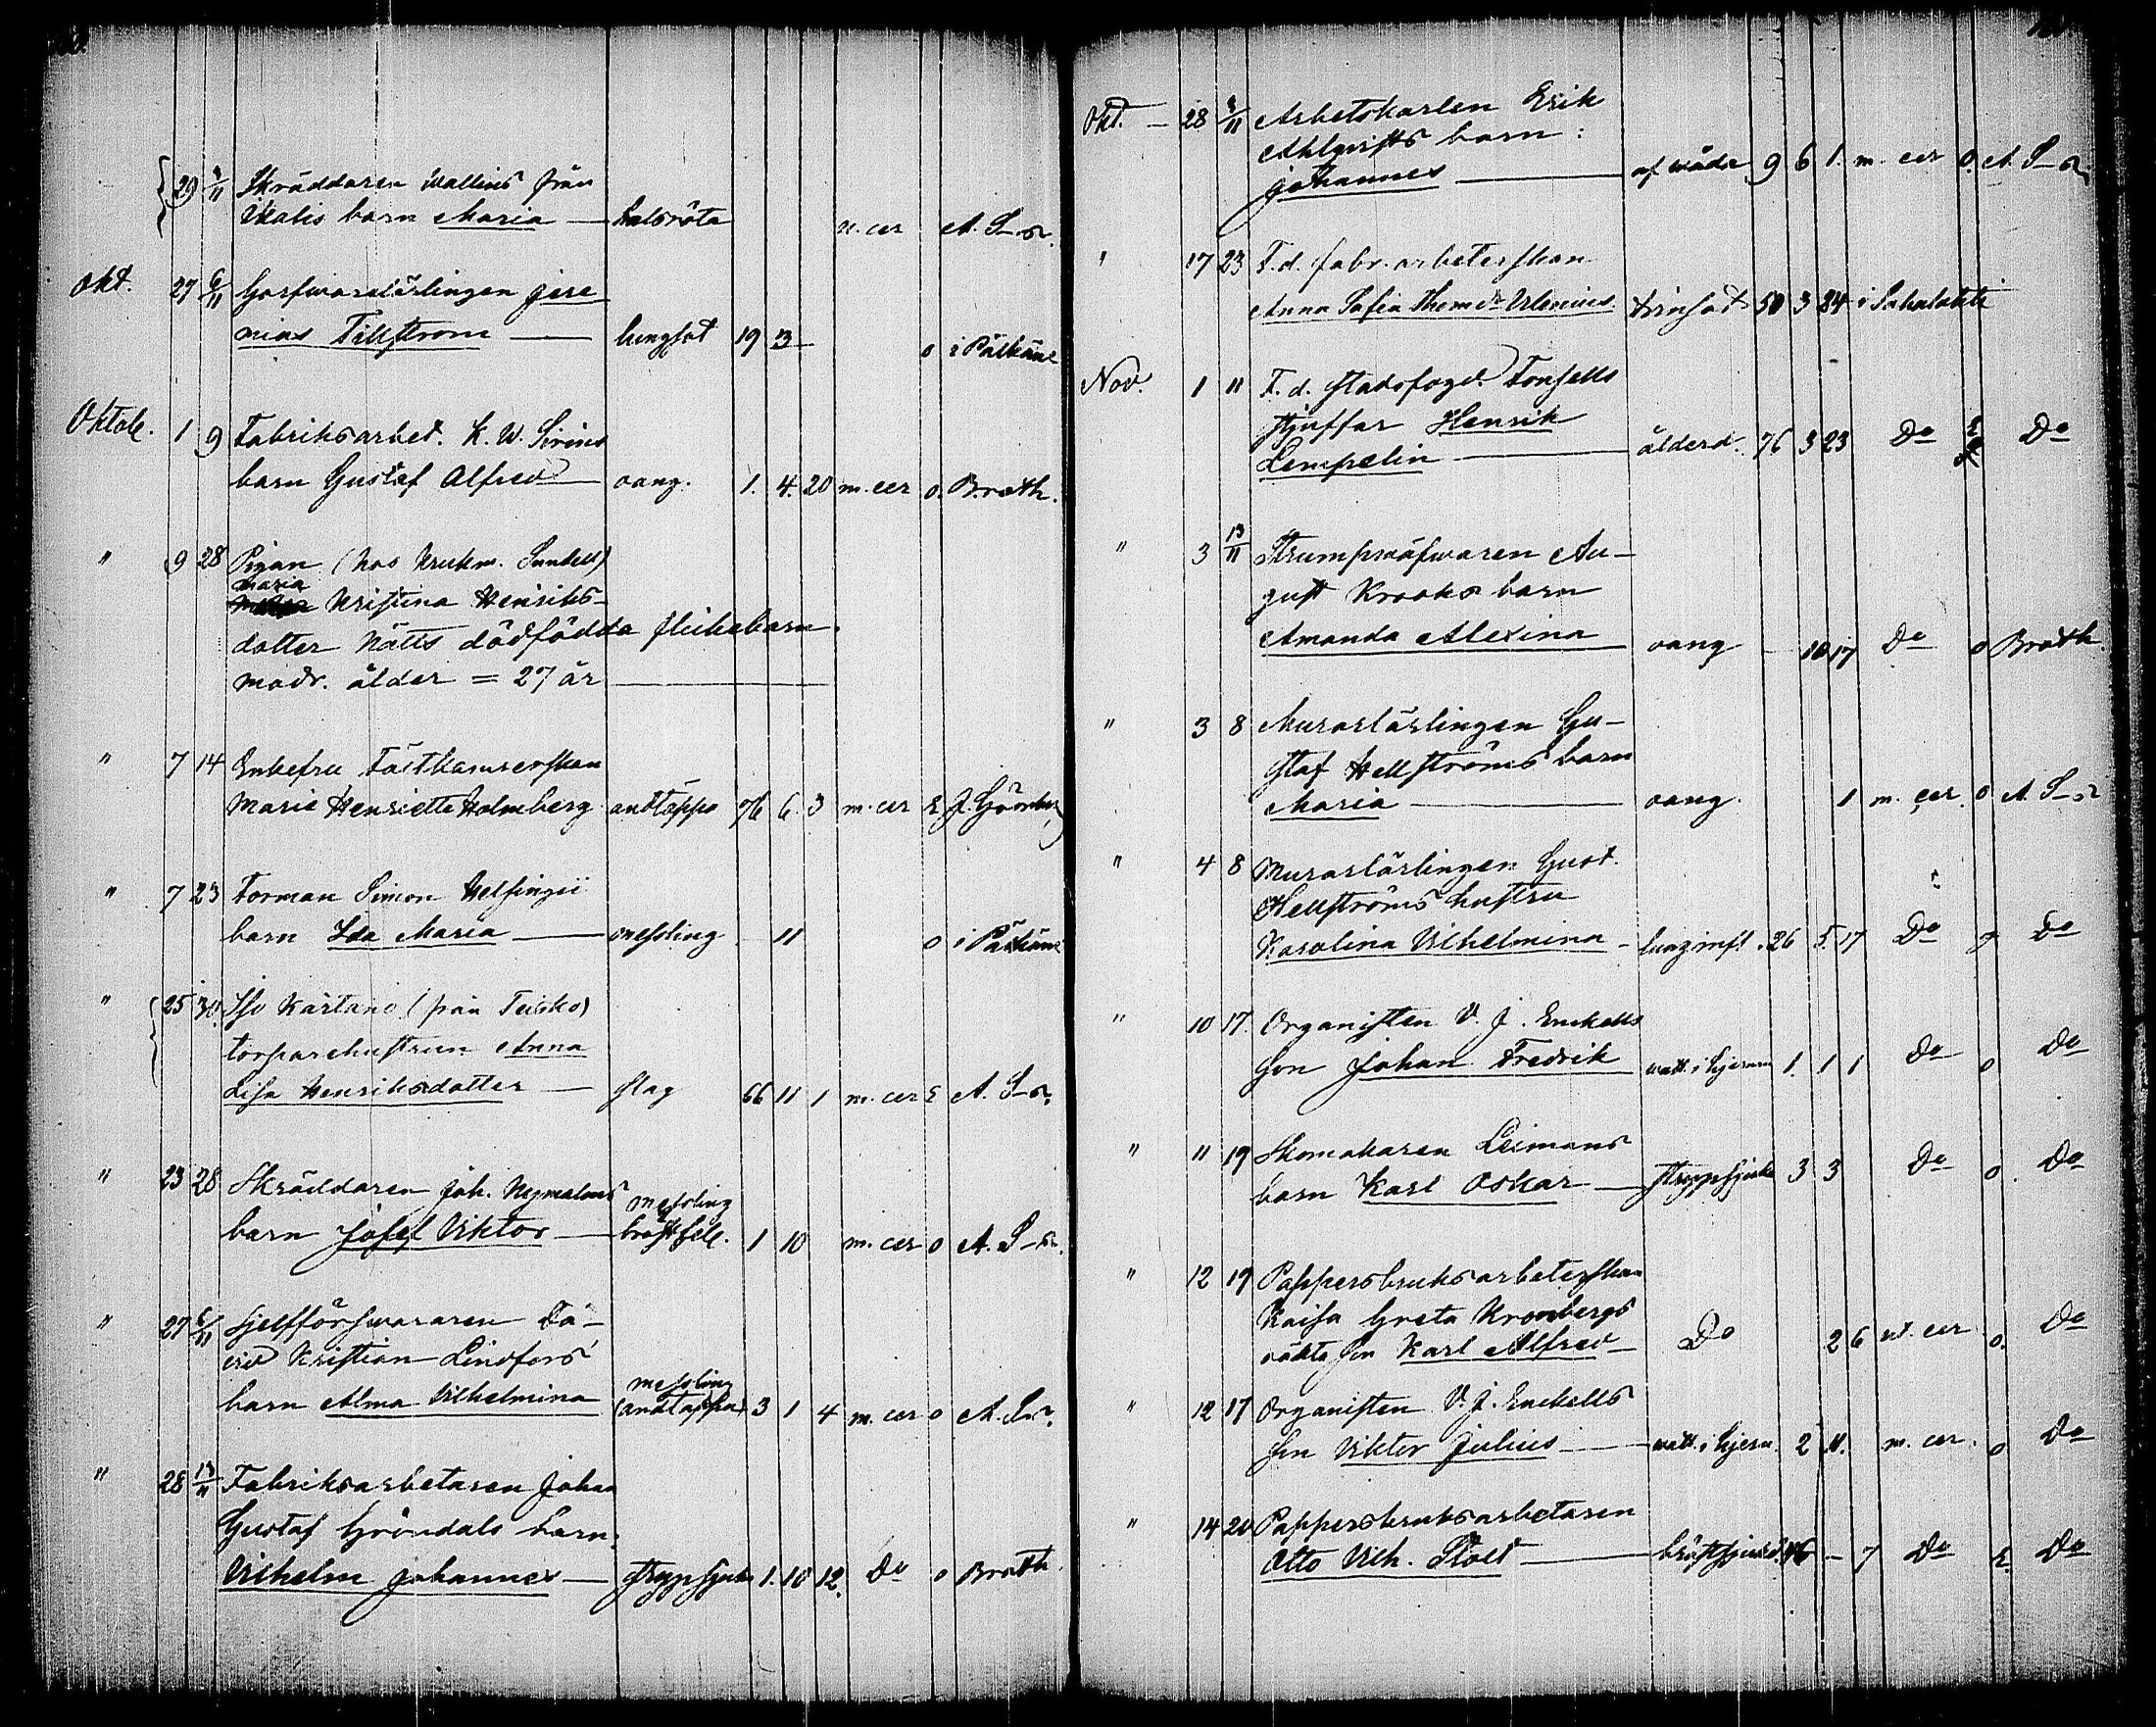 29 1/11 Skräddaren Wallins från
Ikalis barn Maria — halsröta u. cer A. S-r.
Okt. 27 6/11 Garfwarelärlingen Jere
mias Tillström — lungsot 19 3 — 0 i Pälkäne
Oktob. 1 9 Fabriksarbet. K. W. Sirins
barn Gustaf Alfred — oang. 1. 4. 20 m. cer 0. Broth.
" 9 28 Pigan (hos Krukm. Sundell)
Maria
Kristina Henriks-
dotter Nätts dödfödda flickebarn.
modr. ålder = 27 år —
" 7 14 Enkefru
Marie Henriette Holmberg andtäppa 76 6 3 m. cer E
" 7 23 Forman Simon Helsingii
barn Ida Maria — messling — 11 0 i Pälkäne
" 25 30. Iso Kartano (från Teisko)
torparehustrun Anna
Lisa Henriksdotter — slag 66 11 1 m. cer E A. S-r.
" 23 28 Skräddaren Joh. Nymalms
messling
barn Josef Viktor — bröstfel. 1 10 m. cer 0 A. S-r.
" 27 6/11 Sjelfförswararen Da-
vid Kristian Lindfors'
messling
barn Alma Vilhelmina (andtäppa) 3 1 4 m. cer 0 A. S-r.
" 28 13/11 Fabriksarbetaren Johan
Gustaf Gröndals barn
Vilhelm Johannes — strypsjuka 1. 10 12. Do 0 Broth.
Okt. — 28 1/11 Arbetskarlen Erik
Ahlqvists barn:
Johannes — af wåda 9 6 1. m. cer 0. A. S-r
" 17 23 F. d. fabr. arbeterskan
Anna Sofia Themdr Ulenius trinsot 50 3 24 i Sahalahti
Nov. 1 11 F. d. stadsfogd. Fonsells
stjuffar Henrik
Lempelin — ålderd. 76 3 23 Do E Do
" 3 13/11 Strumpwäfwaren Au-
gust Krooks barn
Amanda Alexina oang — 10 17 Do 0 Broth.
" 3 8 Murarlärlingen Gu-
staf Hellströms barn
Maria — oang. 1 m. cer. 0 A. S-r
" 4 8 Murarlärlingen Gust.
Hellströms hustru
Karolina Vilhelmina — lunginfl. 26 5. 17 Do g Do
" 10 17. Organisten V. J. Enckells
son Johan Fredrik watt. i hjernan 1. 1 1 Do 0 Do
" 11 19 Skomakaren Leimans
barn Karl Oskar — strypsjuka 3 3 Do 0. Do
" 12 19 Pappersbruksarbeterskan
Kaisa Greta Kronbergs
oäkta son Karl Alfred — Do 2 6 u. cer 0. Do
" 12 17 Organisten V. J. Enckells
son Viktor Julius — watt. i hjern. 2 11. m. cer. 0 Do
" 14 20 Pappersbruksarbetaren
Otto Vilh. Stolt — bröstsjukd. 46 — 7 Do E. Do